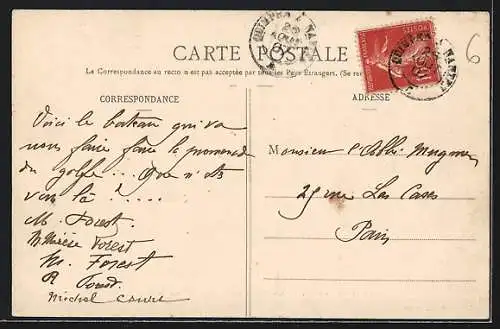 CARTE POSTALE
La Correspondance au recto n'est pas acceptée par tous les Pays Étrangers. (Se
CORRESPONDANCE
ADRESSE
6
Voici le bateau qui va
nous faire faire la promenade
du golfe... Que n'êtes
vous là ? ....
M. Forest
Thérèse Forest
M. Forest
R Forest
Michel
Monsieur l'Abbé
25 rue Las Cases
Paris